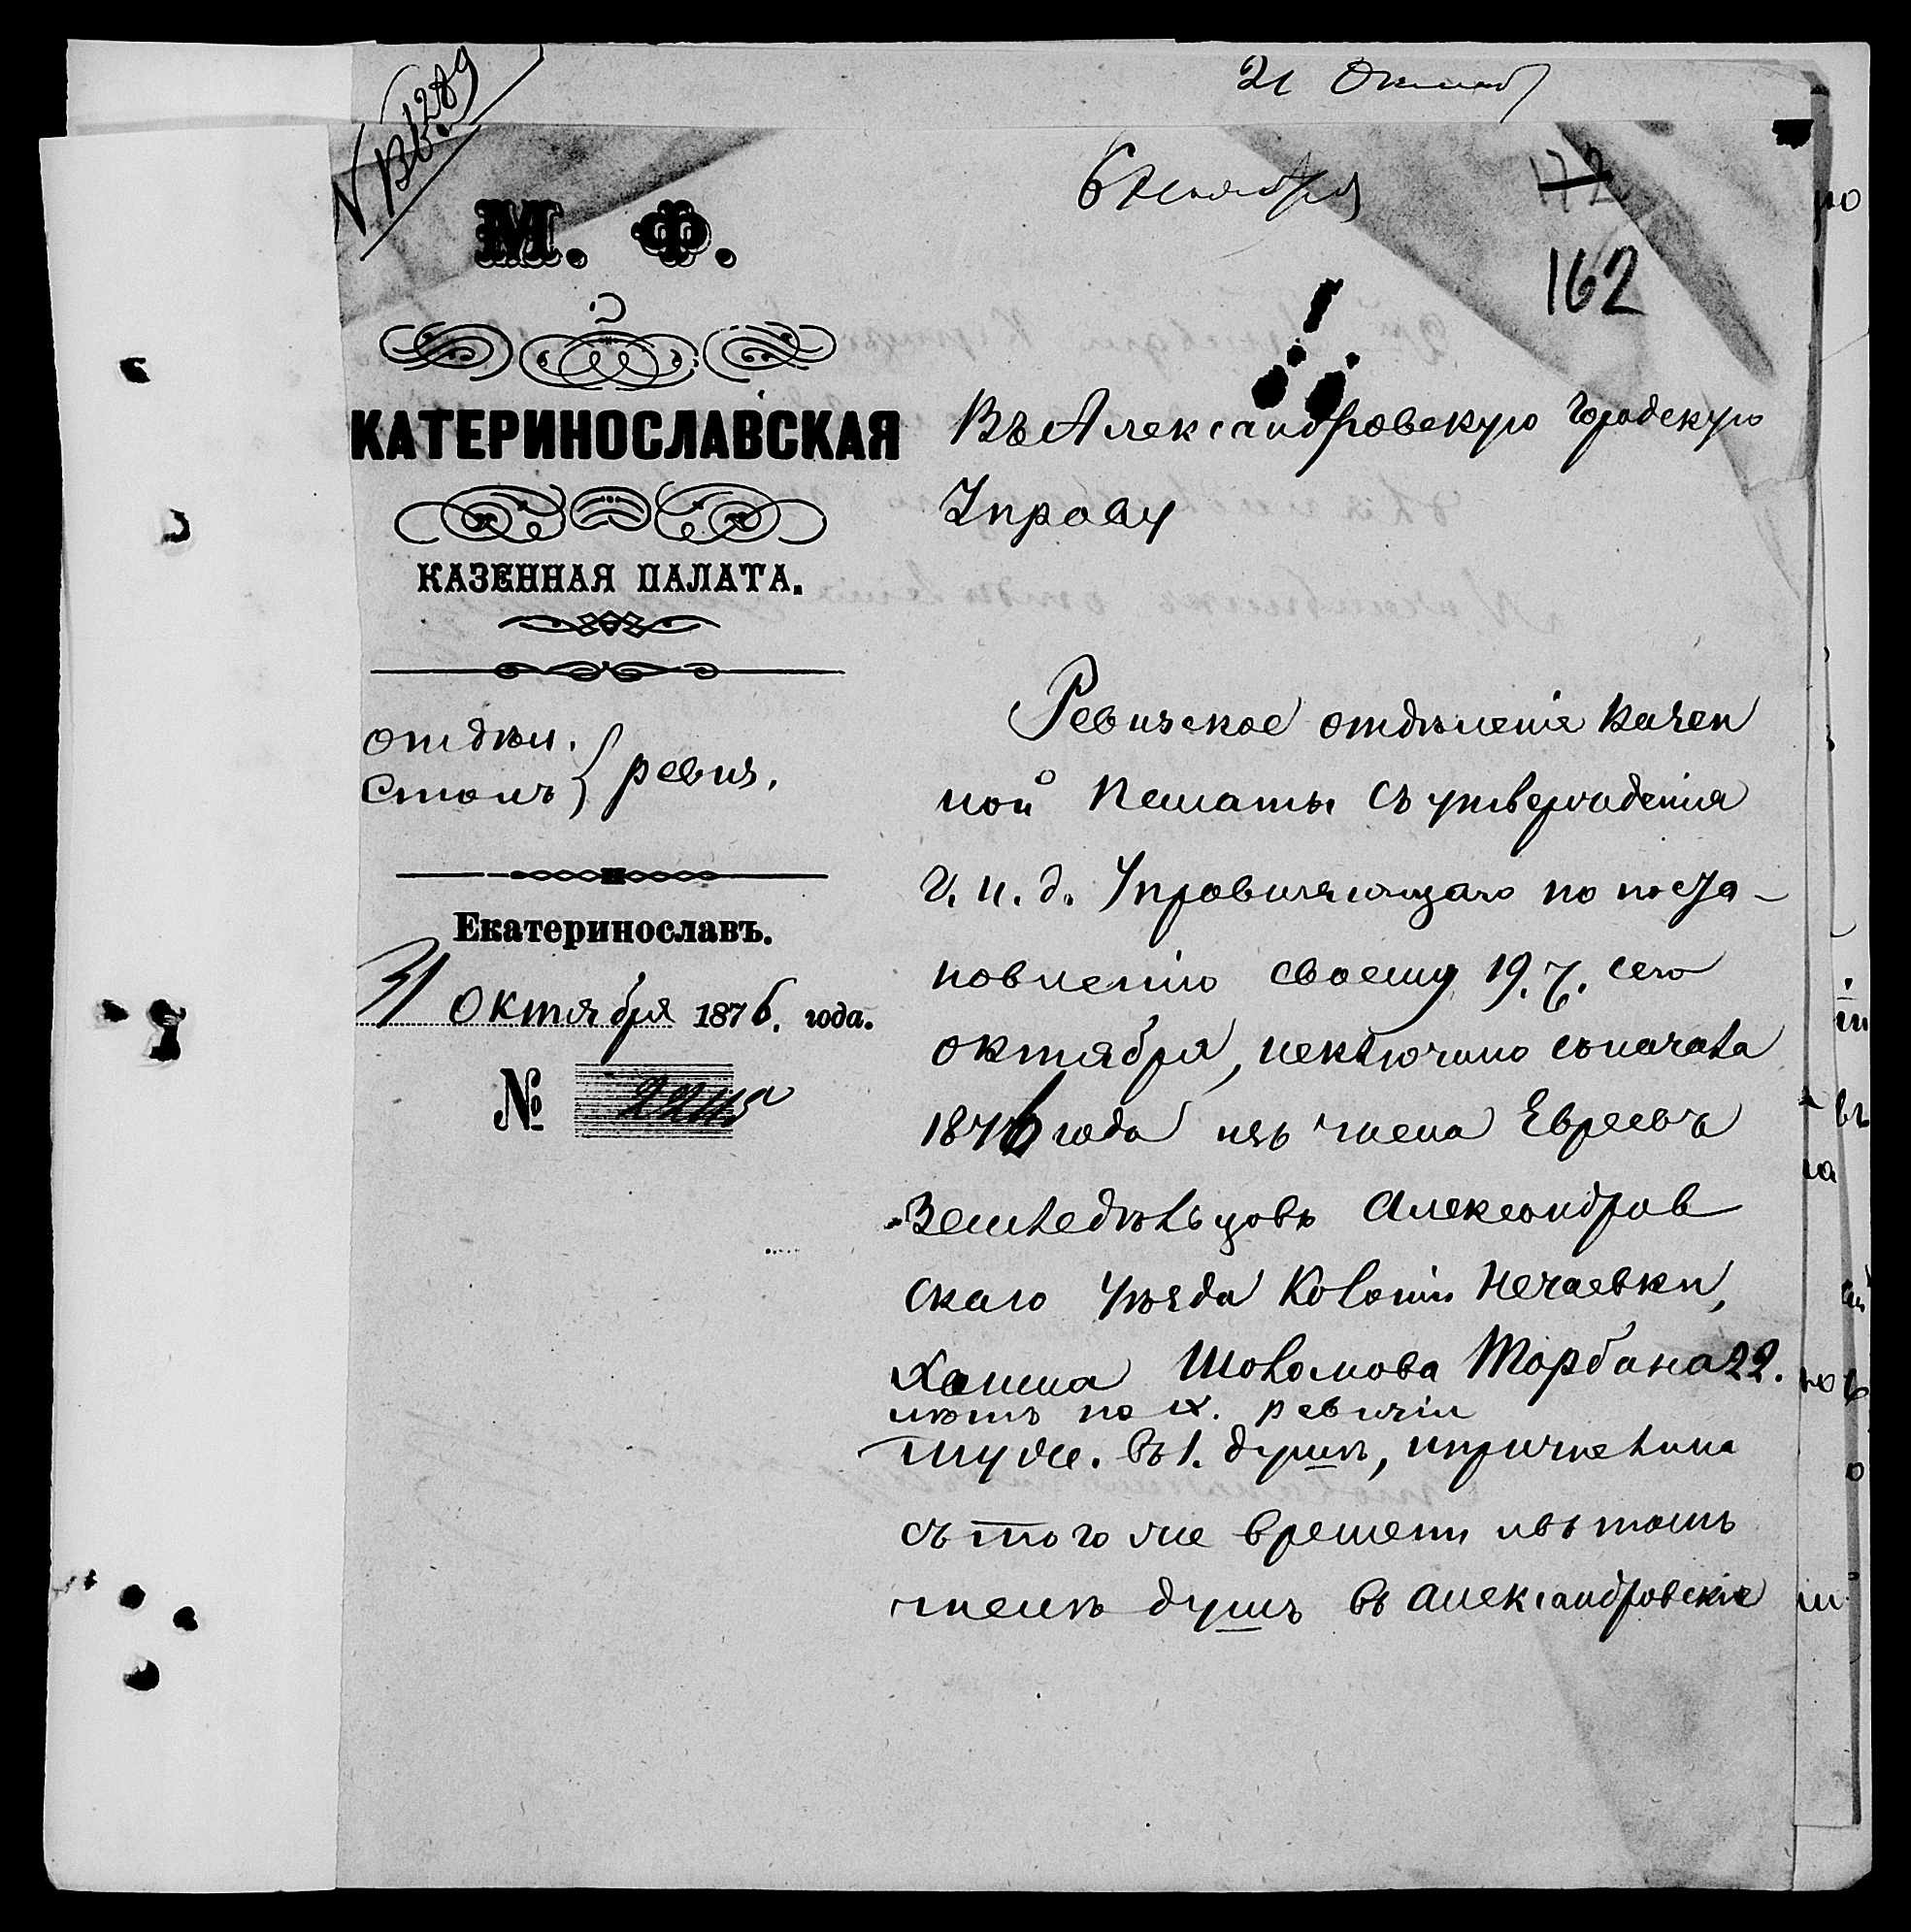 21 Октяб
№ Вб. 1289
6 Декабря
172
162
М. Ф.
КАТЕРИНОСЛАВСКАЯ
КАЗЕННАЯ ПАЛАТА.
отдѣл.
Столъ } ревиз.
Екатеринославъ.
31 Октября 1876. года.
№
Въ Александровскую Городскую
Управу
Ревизское отдѣленіе Казен
ной Палаты съ утвержденія
Г. и. д. Управляющаго по поста-
новленію своему 19. ч. сего
октября, исключило сначала
1876 года изъ числа Евреевъ
Земледѣльцовъ Александров
скаго Уѣзда Колоніи Нечаевки,
Хаима Шоломова Торбана 22.
лѣтъ по IX. ревизіи
муж. въ 1. душѣ, и причислила
съ того же времени въ томъ
числѣ душъ въ Александровскіе